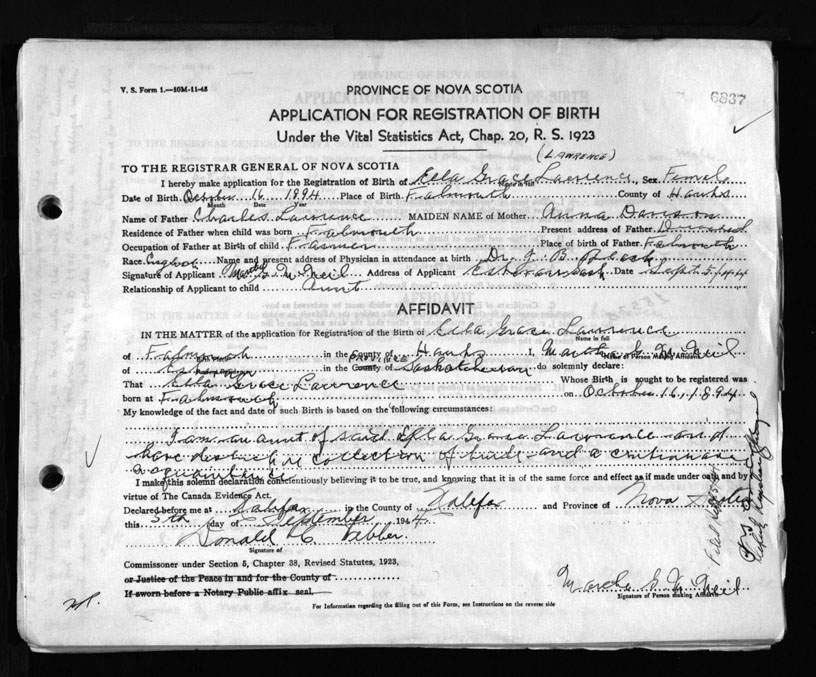 V. S. Form 1.—10M-11-43
PROVINCE OF NOVA SCOTIA
6837
APPLICATION FOR REGISTRATION OF BIRTH
Under the Vital Statistics Act, Chap. 20, R. S. 1923
(LAWRENCE)
TO THE REGISTRAR GENERAL OF NOVA SCOTIA
I hereby make application for the Registration of Birth of Ella Grace Lawrence, Sex Female
Date of Birth October 16 1894 Place of Birth Falmouth County of Hants
Month Date Year
Name of Father Charles Lawrence MAIDEN NAME of Mother Anna Davison
Residence of Father when child was born Falmouth Present address of Father Deceased
Occupation of Father at Birth of child Farmer Place of birth of Father Falmouth
Race Name and present address of Physician in attendance at birth Dr. J. B. Black
Signature of Applicant Martha G. McNeil Address of Applicant Date Sept 5/44
Relationship of Applicant to child Aunt
AFFIDAVIT
IN THE MATTER of the application for Registration of the Birth of Ella Grace Lawrence
Name in full
of Falmouth in the County of Hants I, Martha G. McNeil
PROVINCE
of in the County of Saskatchewan do solemnly declare:
That Ella Grace Lawrence Whose Birth is sought to be registered was
born at Falmouth on October 16, 1894
My knowledge of the fact and date of such Birth is based on the following circumstances:
I am an aunt of said Ella Grace Lawrence and
have distinctive collection of birth and a continuous
acquaintance
I make this solemn declaration conscientiously believing it to be true, and knowing that it is of the same force and effect as if made under oath and by
virtue of The Canada Evidence Act.
Declared before me at Halifax in the County of Halifax and Province of Nova Scotia
this 5th day of September 1944
Donald
Signature of
Commissoner under Section 5, Chapter 38, Revised Statutes, 1923,
or Justice of the Peace in and for the County of
If sworn before a Notary Public affix seal.
Martha G. McNeil
Signature of Person making Affidavit
For Information regarding the filling out of this Form, see Instructions on the reverse side